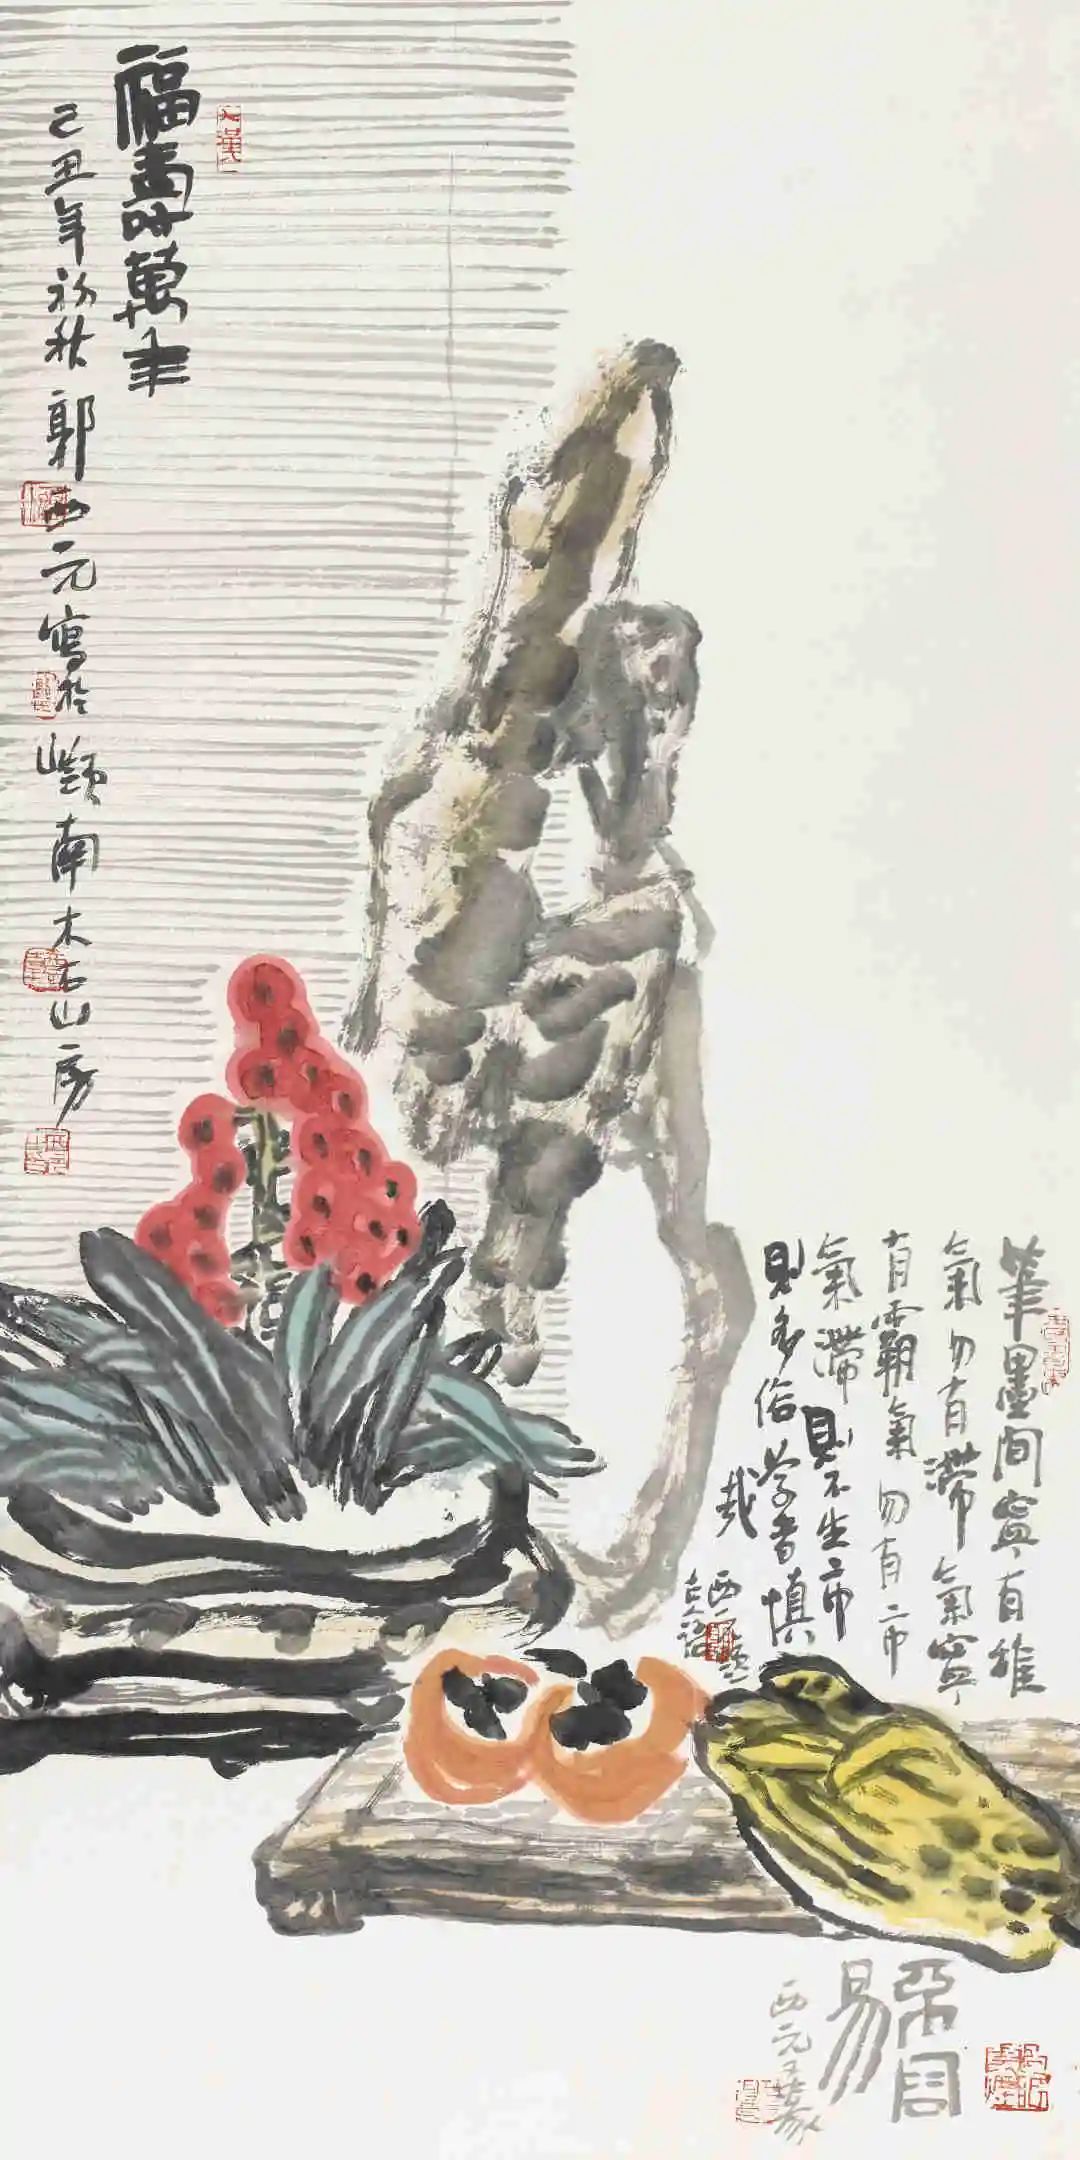 福壽萬年
己丑年初秋郭西元寫於嶺南木石山房
筆墨間寧有稚
氣勿有滯氣寧
有霸氣勿有市
氣滯則不生市
則多俗學者慎
哉
古人語
西元題
易
西元又篆